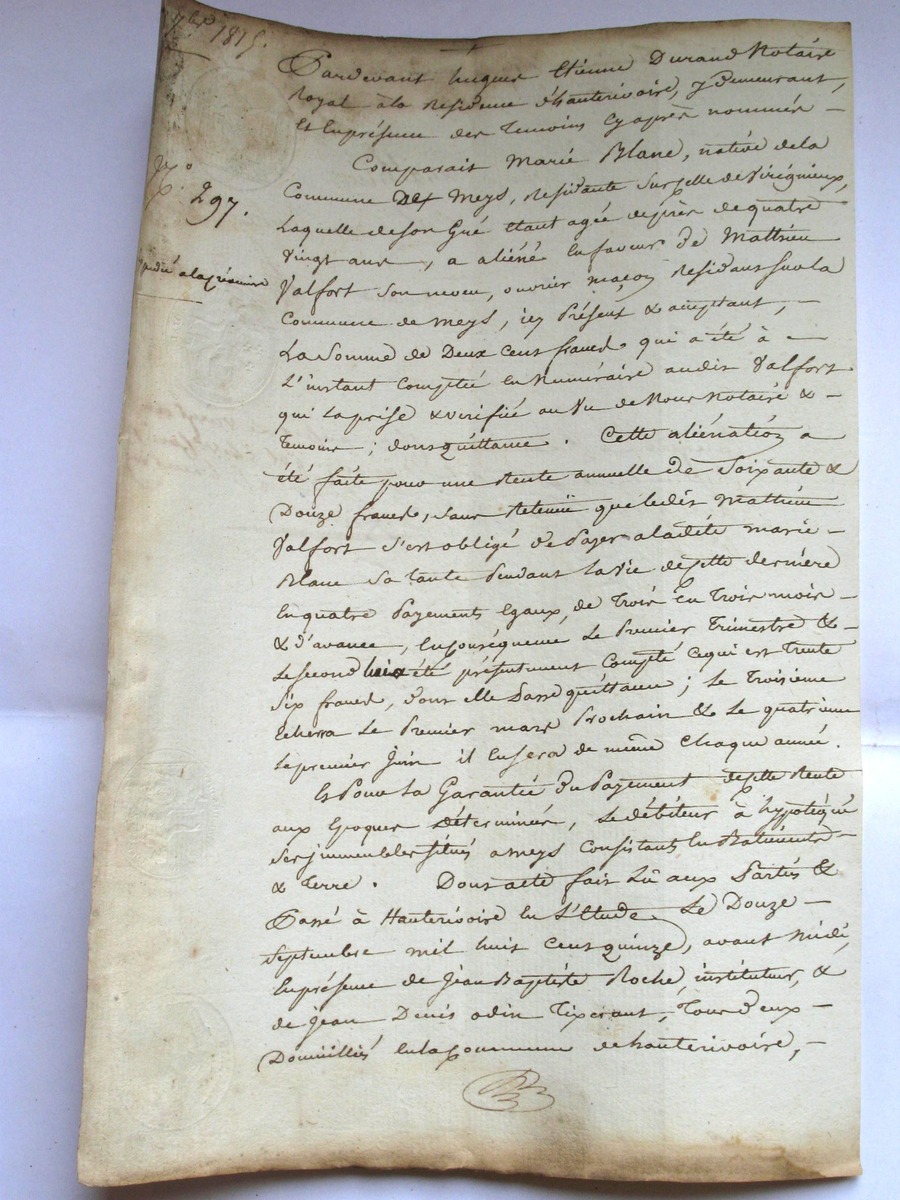 7bre 1815.
Pardevant hugues Etienne Durand Notaire
Royal à la Residence d'hauterivoire, y demeurant,
et En présence des Temoins Cy après nommés —
Comparait Marie Blanc, native de la
N.o 297.
Commune De Meys, Residante Sur Celle de Virignieux,
Laquelle de son Gré Etant agée de près de quatre
Vingt ans, a aliéné En faveur de Mathieu
Expedié a la Crénciere
Valfort son neveu, ouvrier maçon Residant sur la
Commune de meys, icy Présent & acceptant, —
La Somme de Deux Cent francs qui a été à —
L'instant Comptée En Numéraire audit Valfort
qui La prise & verifié au Vu de Nous Notaire & —
Temoins ; dont quittance. Cette aliénation a
été faite pour une Rente annuelle de Soixante &
Douze francs, Sans Retenue que ledit Mathieu
Valfort s'est obligé de Payer a ladite marie —
Blanc Sa tante Pendant La Vie de cette dernière
En quatre Payements Egaux, de Trois En Trois mois —
& d'avance, En Conséquence Le Premier Trimestre & —
Le second lui a été présentement Compté Ce qui est Trente
Six francs, dont Elle Passe quittance ; Le Troisieme
Echerra Le Premier mars Prochain & Le quatrieme
Le premier Juin il En sera de même Chaque année.
Et Pour La Garantie du Payement de cette Rente
aux Epoques Déterminées, Le débiteur à hypotéqué
Ses jmmeubles situés a meys Consistants En Batiments —
& Terre. Dont acte fait Lû aux Parties &
Passé à Hauterivoire En L'Etude Le Douze —
Septembre mil huit Cent quinze, avant midi,
En présence de Jean Baptiste Roche, instituteur, &
de Jean Denis odin Tixerant, Tous d'eux —
Domiciliés En la Commune de hauterivoire, —